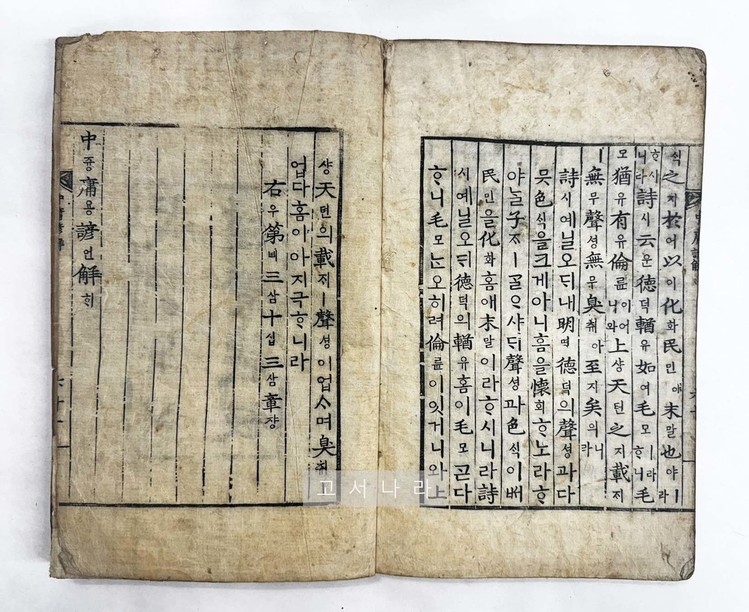 식之지於어以이化화民민애末말也야ㅣ라
ᄒᆞ시니라詩시云운德덕輶유如여毛모ㅣ라ᄒᆞ니毛
모猶유有유倫륜이어니와上샹天텬之지載ᄌᆡ
無무聲셩無무臭취아至지矣의니라
詩시예닐오ᄃᆡ내明명德덕의聲셩과다
믓色식을크게아니홈을懷회ᄒᆞ노라ᄒᆞ
야ᄂᆞᆯ子ᄌᆞㅣᄀᆞᆯᄋᆞ샤ᄃᆡ聲셩과色식이ᄡᅥ
民민을化화홈애末말이라ᄒᆞ시니라詩
시예닐오ᄃᆡ德덕의輶유홈이毛모ᄀᆞᆮ다
ᄒᆞ니毛모ᄂᆞᆫ오히려倫륜이잇거니와上
샹天텬의載ᄌᆡㅣ聲셩이업스며臭취
업다홈이아지극ᄒᆞ니라
右우第뎨三삼十십三삼章쟝
中듕庸용諺언解ᄒᆡ
고서나라